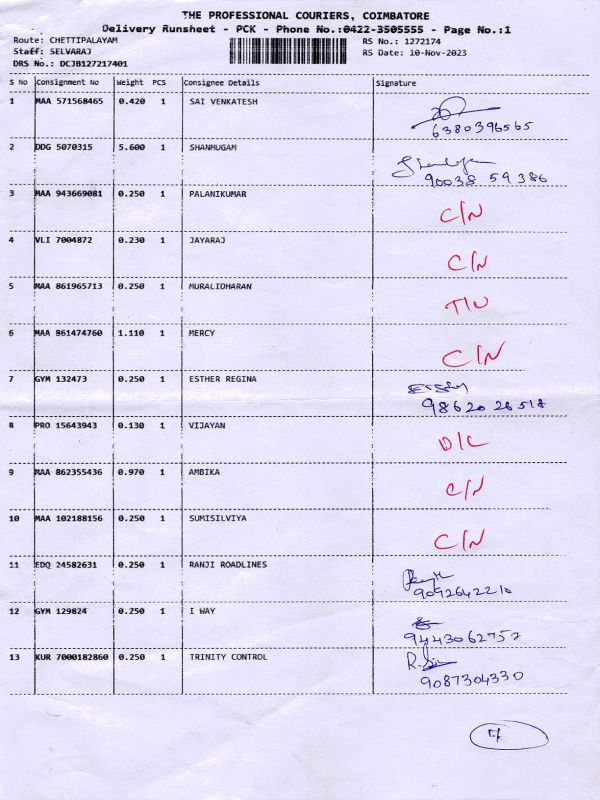 THE PROFESSIONAL COURIERS, COIMBATORE
Delivery Runsheet - PCK - Phone No.:0422-3505555 - Page No.:1
Route: CHETTIPALAYAM RS No.: 1272174
Staff: SELVARAJ RS Date: 10-Nov-2023
DRS No.: DCJB127217401
S No Consignment No Weight PCS Consignee Details Signature
1 MAA 571568465 0.420 1 SAI VENKATESH
6380396565
2 DDG 5070315 5.600 1 SHANMUGAM
90038 59386
3 MAA 943669081 0.250 1 PALANIKUMAR C/N
4 VLI 7004872 0.230 1 JAYARAJ C/N
5 MAA 861965713 0.250 1 MURALIDHARAN
6 MAA 861474760 1.110 1 MERCY C/N
7 GYM 132473 0.250 1 ESTHER REGINA
98620 26518
8 PRO 15643943 0.130 1 VIJAYAN D/L
9 MAA 862355436 0.970 1 AMBIKA C/N
10 MAA 102188156 0.250 1 SUMISILVIYA C/N
11 EDQ 24582631 0.250 1 RANJI ROADLINES
9092642210
12 GYM 129824 0.250 1 I WAY
9443062757
13 KUR 7000182860 0.250 1 TRINITY CONTROL
9087304330